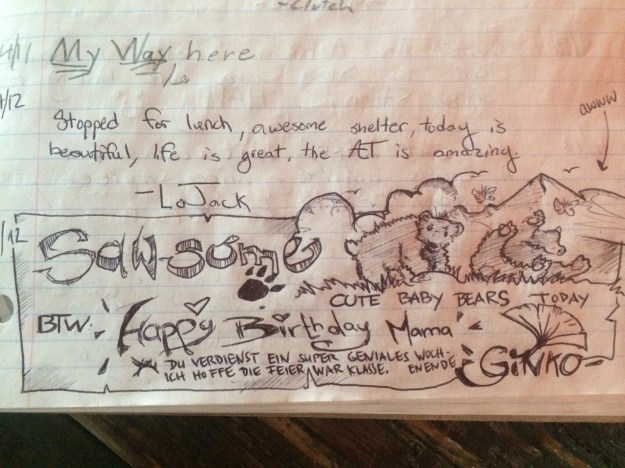 -Clutch
4/11 My Way, here
4/12
Stopped for lunch, awesome shelter, today is
awww
beautiful, life is great, the AT is amazing.
-LoJack
/12 Saw-some
CUTE BABY BEARS TODAY
BTW: Happy Birthday Mama
DU VERDIENST EIN SUPER GENIALES WOCH-
ENENDE
ICH HOFFE DIE FEIER WAR KLASSE.
GiNKO